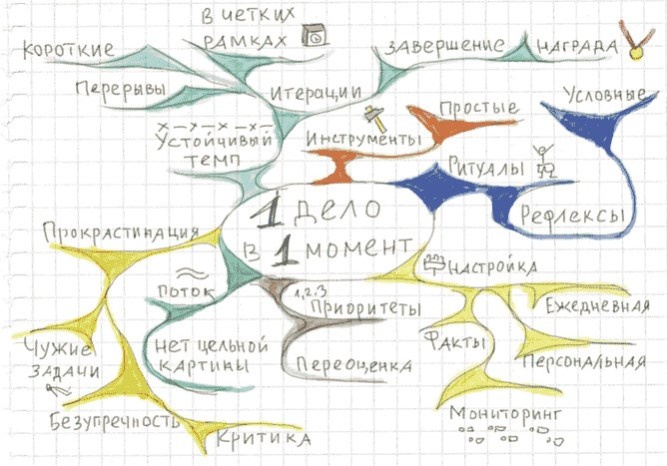 в четких
рамках
Короткие
Завершение
Награда
Перерывы
Итерации
Простые
Условные
Устойчивый
темп
Инструменты
Ритуалы
Рефлексы
1 дело
в 1 момент
Прокрастинация
Настройка
Поток
1,2,3
Приоритеты
Ежедневная
Чужие
задачи
Нет цельной
картины
Переоценка
Факты
Персональная
Безупречность
Критика
Мониторинг